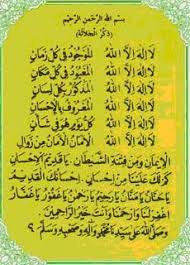 بسم الله الرحمن الرحيم
(ذكر الجلالة)
لَا إِلٰهَ إِلَّا اللهُ الْمَوْجُودُ فِي كُلِّ زَمَانٍ
لَا إِلٰهَ إِلَّا اللهُ الْمَعْبُودُ فِي كُلِّ مَكَانٍ
لَا إِلٰهَ إِلَّا اللهُ الْمَذْكُورُ بِكُلِّ لِسَانٍ
لَا إِلٰهَ إِلَّا اللهُ الْمَعْرُوفُ بِالْإِحْسَانِ
لَا إِلٰهَ إِلَّا اللهُ كُلَّ يَوْمٍ هُوَ فِي شَأْنٍ
لَا إِلٰهَ إِلَّا اللهُ الْأَمَانَ الْأَمَانَ مِنْ زَوَالِ
الْإِيْمَانِ وَمِنْ فِتْنَةِ الشَّيْطَانِ يَا قَدِيْمَ الْإِحْسَانِ
كَمْ لَكَ عَلَيْنَا مِنْ إِحْسَانٍ إِحْسَانُكَ الْقَدِيْمُ
يَا حَنَّانُ يَا مَنَّانُ يَا رَحِيْمُ يَا رَحْمٰنُ يَا غَفُوْرُ يَا غَفَّارُ
اغْفِرْ لَنَا وَارْحَمْنَا وَأَنْتَ خَيْرُ الرَّاحِمِيْنَ
وَصَلَّى اللهُ عَلَى سَيِّدِنَا مُحَمَّدٍ وَآلِهِ وَصَحْبِهِ وَسَلَّمَ